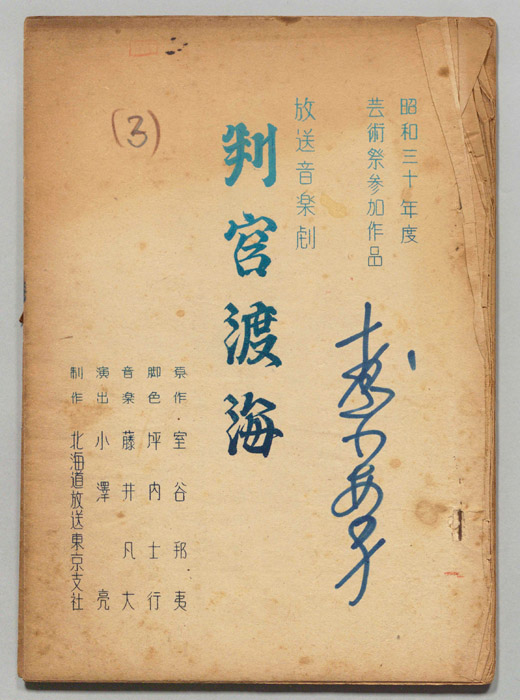 昭和三十年度
芸術祭参加作品
放送音楽劇
判官渡海
(3)
原作・室谷邦夷
脚色 坪内士行
音楽 藤井凡大
演出 小澤亮
制作 北海道放送東京支社